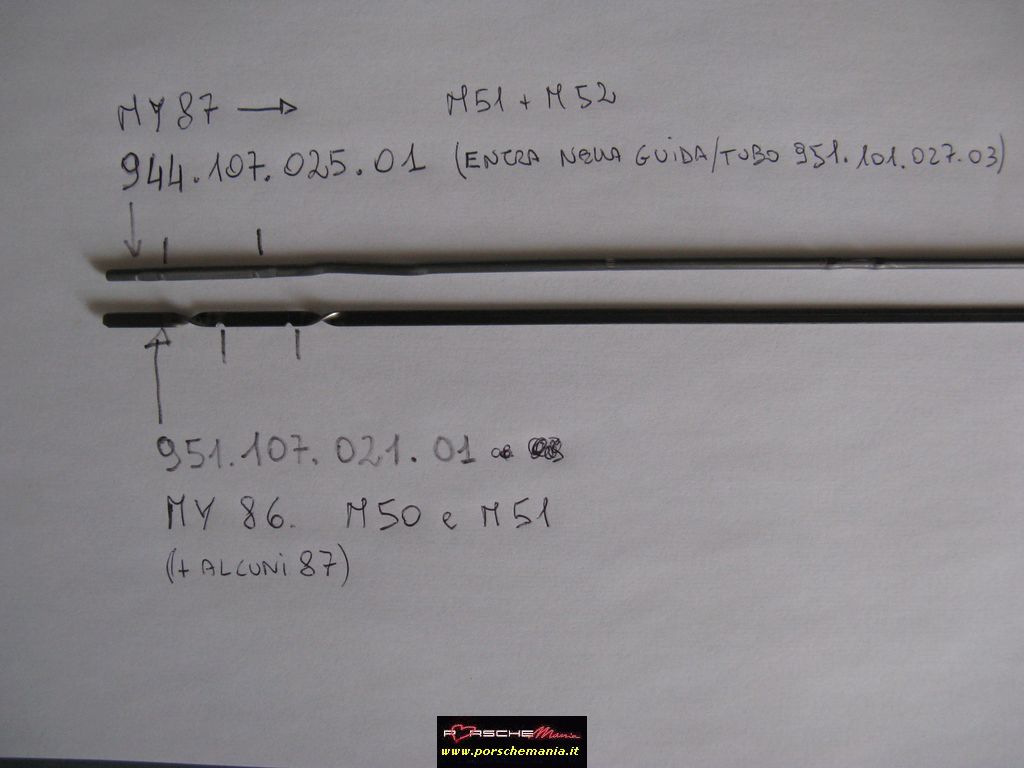 MY 87 → M51 + M52
944.107.025.01 (ENTRA NELLA GUIDA/TUBO 951.101.027.03)
951.107.021.01
MY 86. M50 e M51
(+ ALCUNI 87)
PORSCHEMania
www.porschemania.it